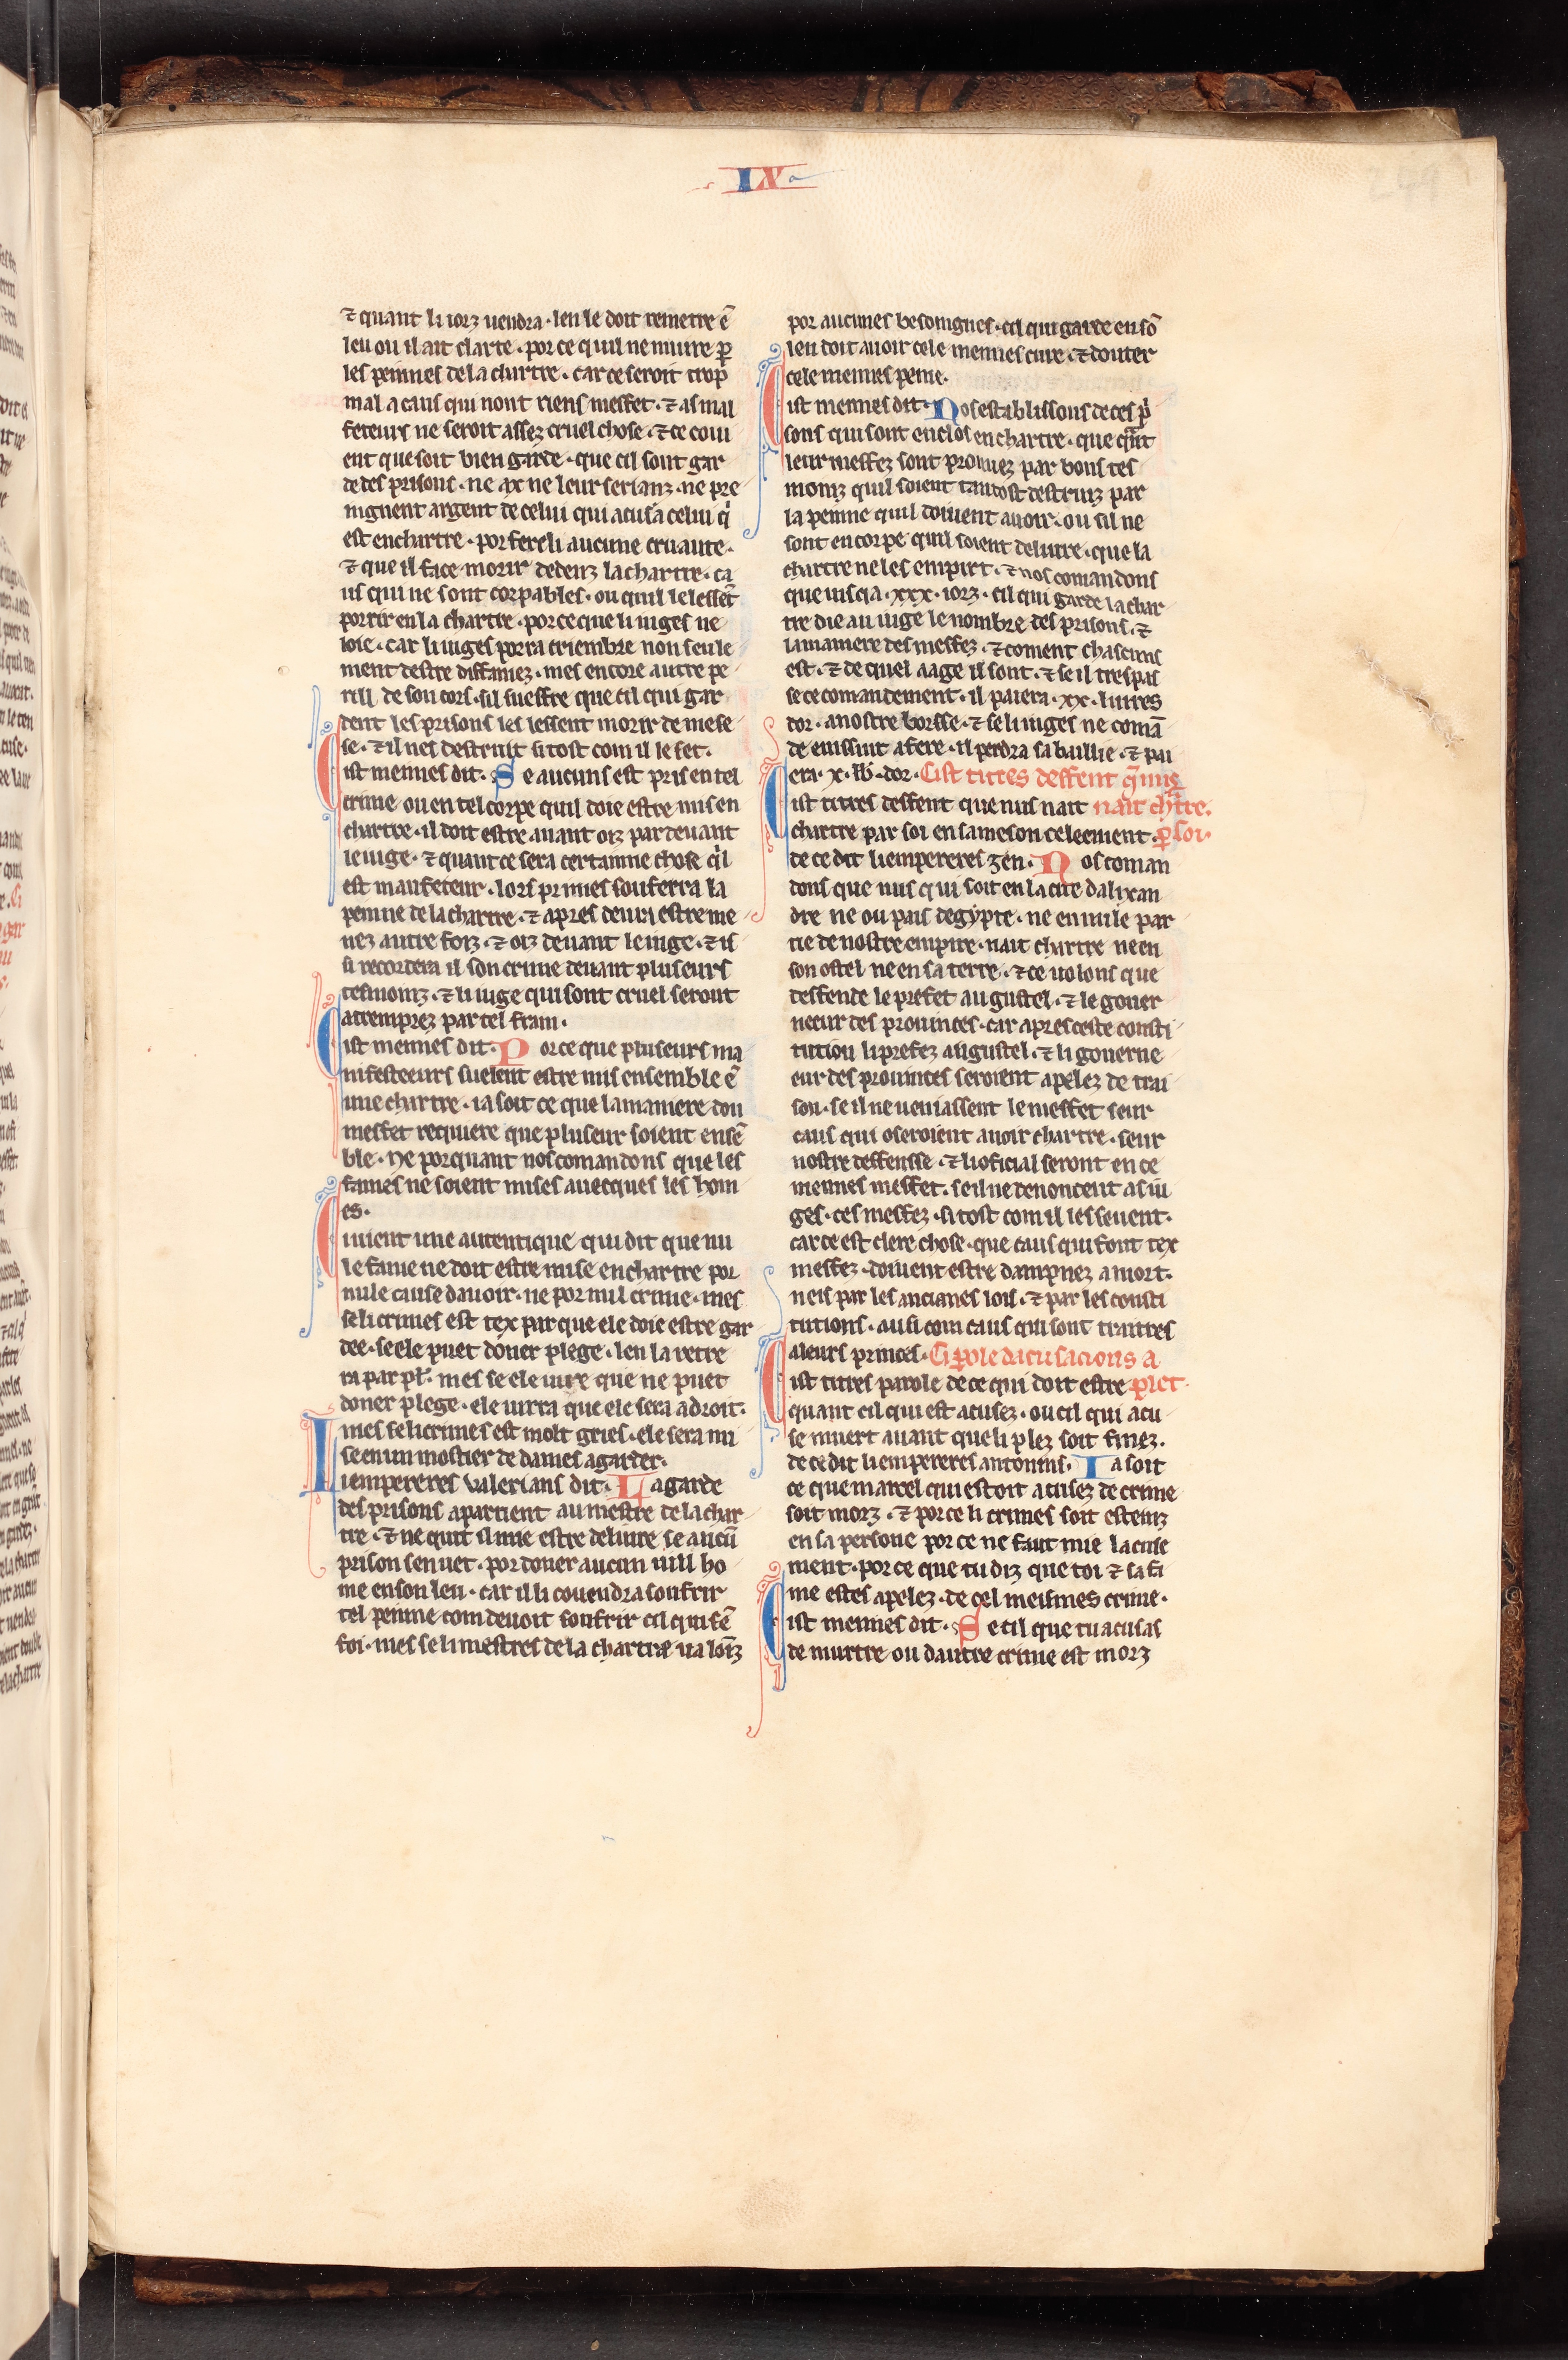 IX
⁊ quant li iorz uendra · len le doit remetre ē
leu ou il ait clarte · por ce quil ne muire ꝑ
les peinnes de la chartre · car ce seroit trop
mal a caus qui nont riens meffet · ⁊ as mal
feteurs ne seroit assez cruel chose · ⁊ ce coui
ent que soit bien garde · que cil sont gar
de des prisons · ne ax ne leur serianz · ne pre
nignent argent de celui qui acusa celui q̇
est en chartre · por fere li aucune cruaute ·
⁊ que il face morir dedenz la chartre · ca
us qui ne sont corpables · ou quil le lessēt
porrir en la chartre · por ce que li iuges ne
loie · car li iuges porra criembre non seule
ment destre diffamez · mes encore autre pe
rill de son cors · sil sueffre que cil qui gar
dent les prisons les lessent morir de mese
se · ⁊ il nes destruit si tost com il le set ·
Cist meimes dit · Se aucuns est pris en tel
crime ou en tel corpe quil doie estre mis en
chartre · il doit estre auant oiz par deuant
le iuge · ⁊ quant ce sera certainne chose q̇l
est maufeteur · lors primes souferra la
peinne de la chartre · ⁊ apres deura estre me
nez autre foiz · ⁊ oiz deuant le iuge · ⁊ is
si recordera il son crime deuant pluseurs
tesmoinz · ⁊ li iuge qui sont cruel seront
atremprez par tel frain ·
Cist meimes dit · Por ce que pluseurs ma
nifesteeurs suelent estre mis ensemble ē
une chartre · ia soit ce que la maniere dou
meffet requiere que pluseur soient ensē
ble · Ne porquant nos comandons que les
fames ne soient mises auecques les hom
es ·
Ci uient une autentique qui dit que nu
le fame ne doit estre mise en chartre por
nule cause dauoir · ne por nul crime · mes
se li crimes est tex par que ele doie estre gar
dee · se ele puet doner plege · len la retre
ra par pl̄ · mes se ele iure que ne puet
doner plege · ele iurra que ele sera a droit ·
mes se li crimes est molt gries · ele sera mi
se en un mostier de dames a garder ·
Li empereres Valerians dit · La garde
des prisons apartient au mestre de la char
tre · ⁊ ne quit il mie estre deliure se aucū
prison sen uet · por doner aucun uill ho
me en son leu · car il li couendra soufrir
tel peinne com deuoit soufrir cil qui sē
foi · mes se li mestres de la chartre ua loīz
por aucunes besoingnes · cil qui garde en sō
leu doit auoir cele meimes cure · ⁊ douter
cele meimes peine ·
Cist meimes dit · Nos establissons de ces ṗ
sons qui sont enclos en chartre · que qn̄t
leur meffez sont prouuez par bons tes
moinz quil soient tantost destruiz par
la peinne quil doiuent auoir · ou sil ne
sont en corpe quil soient deliure · que la
chartre ne les empirt · ⁊ nos comandons
que iusqa · xxx · iorz · cil qui garde la char
tre die au iuge le nombre des prisons · ⁊
la maniere des meffez · ⁊ coment chascuns
est · ⁊ de quel aage il sont · ⁊ se il trespas
se ce comandement · il paiera · xx · liures
dor · a nostre borsse · ⁊ se li iuges ne comā
de enissint a fere · il perdra sa baillie · ⁊ pai
era · x · lb̄ · dor · Cist titres deffent q̄ nus
Cist titres deffent que nus nait nait chr̄tre ·
chartre par soi en sa meson celeement · ꝑ soi ·
de ce dit li empereres zen · Nos coman
dons que nus qui soit en la cite dalixan
dre ne ou pais degypte · ne en nule par
tie de nostre empire · nait chartre ne en
son ostel ne en sa terre · ⁊ ce uolons que
deffende le prefet augustel · ⁊ le gouer
neeur des prouinces · car apres ceste consti
tution li prefez augustel · ⁊ li gouerne
eur des prouinces seroient apelez de trai
son · se il ne uenjassent le meffet seur
caus qui oseroient auoir chartre · seur
nostre deffensse · ⁊ li oficial seront en ce
meimes meffet · se il ne denoncent as iu
ges · ces meffez · si tost com il les seuent ·
car ce est clere chose · que caus qui font tex
meffez · doiuent estre dampnez a mort ·
neis par les ancianes lois · ⁊ par les consti
tutions · ausi com caus qui sont traitres
a leurs princes · Ci ꝑole dacusacions a
Cist titres parole de ce qui doit estre plet ·
quant cil qui est acusez · ou cil qui acu
se muert auant que li plez soit finez ·
de ce dit li empereres antonins · Ia soit
ce que marcel qui estoit acusez de crime
soit morz · ⁊ por ce li crimes soit esteinz
en sa persone por ce ne faut mie lacuse
ment · por ce que tu diz que toi ⁊ sa fa
me estes apelez · de cel meismes crime ·
Cist meimes dit · Se cil que tu acusas
de murtre ou dautre crime est morz